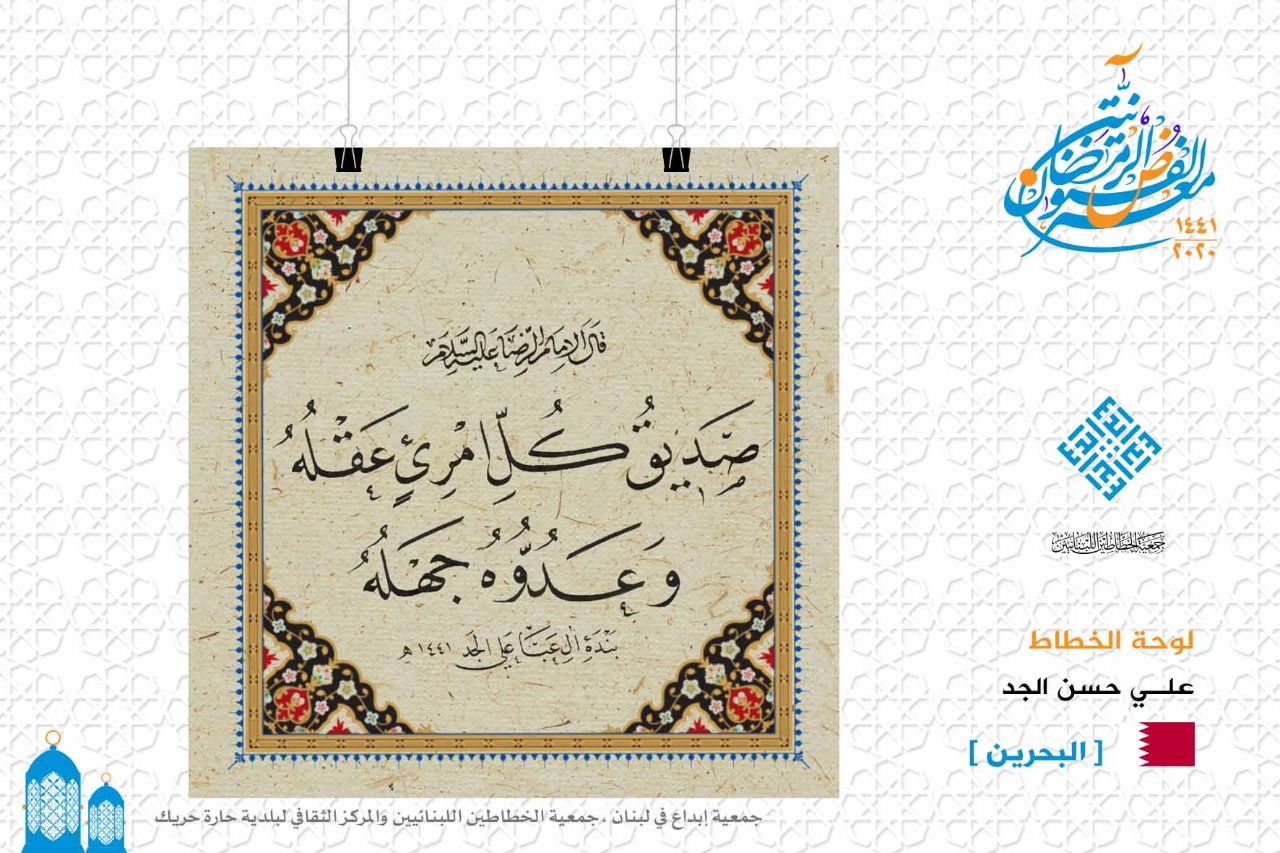 معرض الفنون الرمضاني
١٤٤١
٢٠٢٠
قَالَ الإِمَامُ الرِّضَا عَلَيهِ السَّلَامُ
صَدِيقُ كُلِّ امْرِئٍ عَقْلُهُ
وَعَدُوُّهُ جَهْلُهُ
بَنْدَهِ آلِ عَبَا عَلي الجَد ١٤٤١ هـ
جمعية الخطاطين اللبنانيين
لوحة الخطاط
علـــي حسن الجد
[ البحرين ]
جمعية إبداع في لبنان ، جمعية الخطاطين اللبنانيين والمركز الثقافي لبلدية حارة حريك